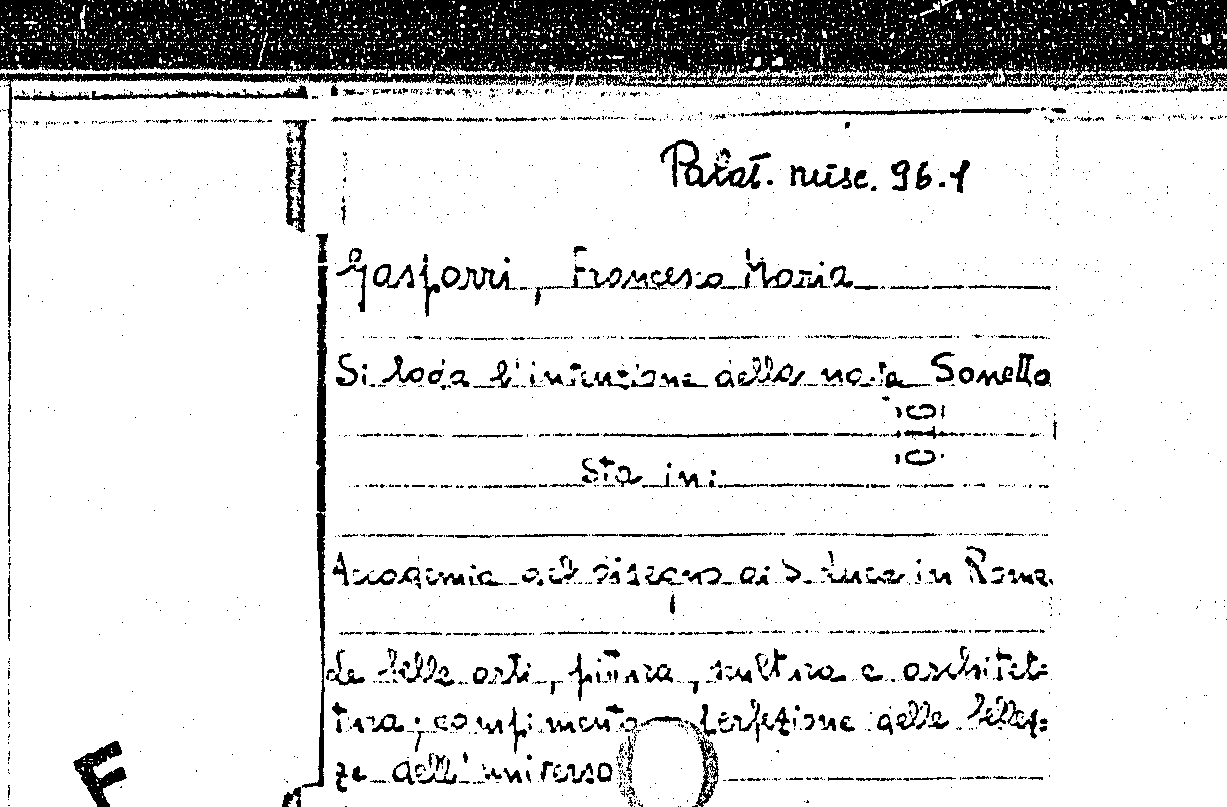 Palat. misc. 96.1
Gasparri, Francesco Maria
Si loda l'intenzione della Sonetto
Sta in:
Accademia del disegno di S. Luca in Roma.
Le belle arti, pittura, scultura e architet=
tura, compimento perfezione delle bellez=
ze dell'universo